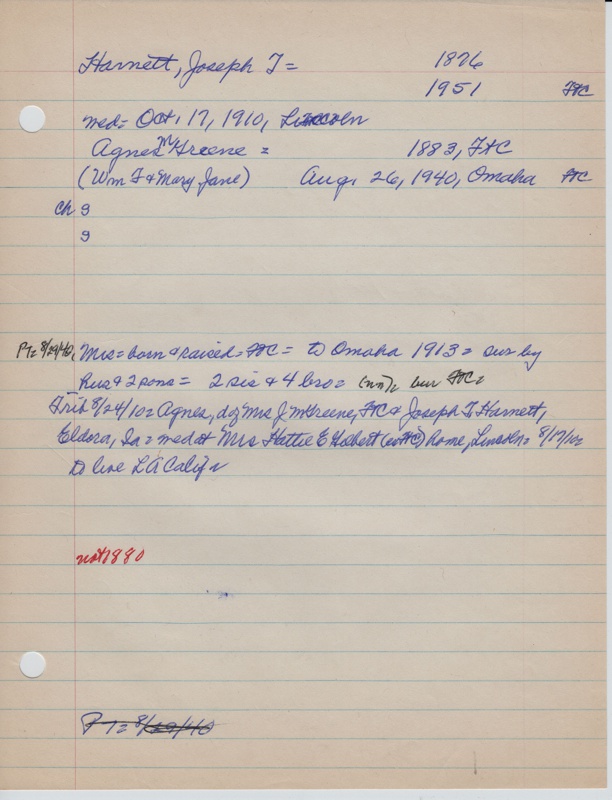 Harnett, Joseph T = 1876
1951 FtC
med = Oct. 17, 1910, Lincoln
Agnes M Greene = 1883, FtC
(Wm F & Mary Jane) Aug. 26, 1940, Omaha FtC
ch 9
9
PT= 8/29/40, Mrs = born & raised = FtC = to Omaha 1913 = sur by
Hus & 2 sons = 2 sis & 4 bro = (nn), bur FtC =
Trib 8/24/10 = Agnes, d of Mrs J M Greene, FtC & Joseph T. Harnett,
Eldora, Ia = med at Mrs Hattie E Holbert home, Lincoln = 8/17/10 =
to live LA Calif
not 1880
PT= 8/29/40